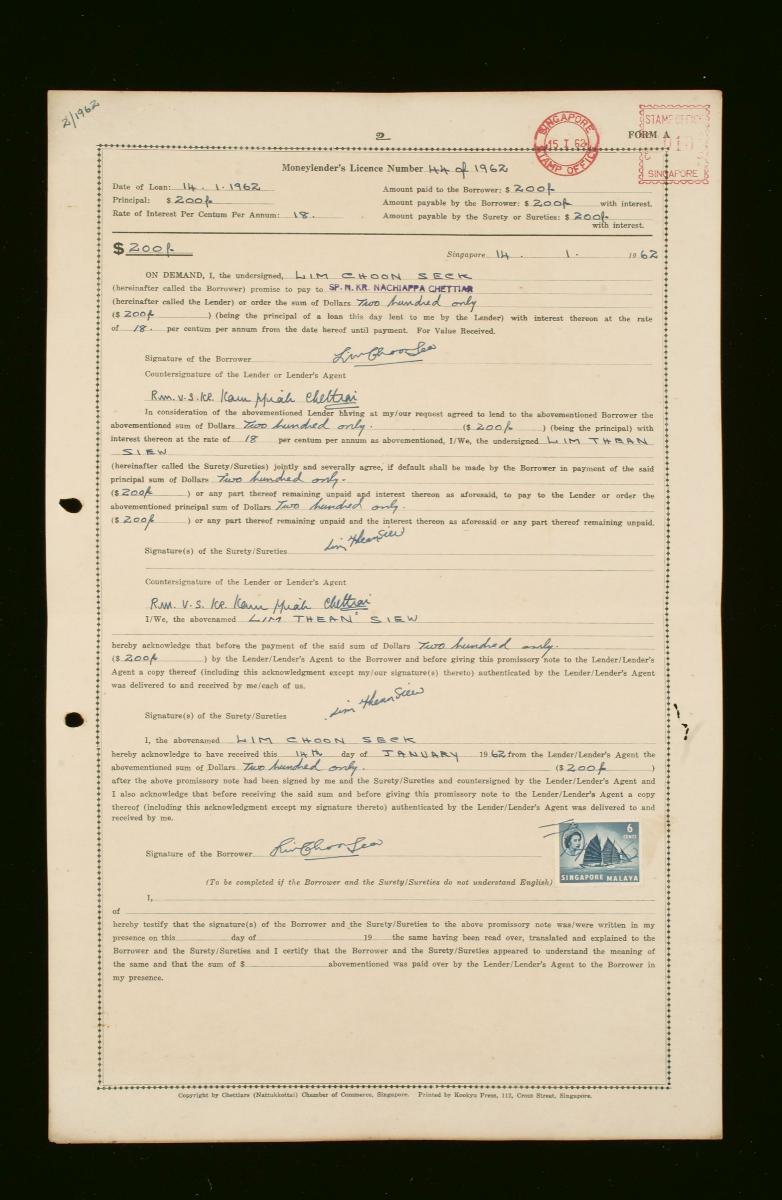 2/1962
2
FORM A
SINGAPORE
15 I 62
STAMP OFFICE
STAMP OFFICE
SINGAPORE
Moneylender's Licence Number 44 of 1962
Date of Loan: 14.1.1962
Principal: $ 200/-
Rate of Interest Per Centum Per Annum: 18.
Amount paid to the Borrower: $ 200/-
Amount payable by the Borrower: $ 200/- with interest.
Amount payable by the Surety or Sureties: $ 200/-
with interest.
$ 200/-
Singapore 14 . 1. 1962
ON DEMAND, I, the undersigned, LIM CHOON SECK
(hereinafter called the Borrower) promise to pay to SP. N. KR. NACHIAPPA CHETTIAR
(hereinafter called the Lender) or order the sum of Dollars Two hundred only
($ 200/- ) (being the principal of a loan this day lent to me by the Lender) with interest thereon at the rate
of 18. per centum per annum from the date hereof until payment. For Value Received.
Signature of the Borrower
Countersignature of the Lender or Lender's Agent
R.M. V.S. KR. Chettiar
In consideration of the abovementioned Lender having at my/our request agreed to lend to the abovementioned Borrower the
abovementioned sum of Dollars Two hundred only. ($ 200/- ) (being the principal) with
interest thereon at the rate of 18 per centum per annum as abovementioned, I/We, the undersigned LIM THEAN
SIEW
(hereinafter called the Surety/Sureties) jointly and severally agree, if default shall be made by the Borrower in payment of the said
principal sum of Dollars Two hundred only.
($ 200/- ) or any part thereof remaining unpaid and interest thereon as aforesaid, to pay to the Lender or order the
abovementioned principal sum of Dollars Two hundred only.
($ 200/- ) or any part thereof remaining unpaid and the interest thereon as aforesaid or any part thereof remaining unpaid.
Signature(s) of the Surety/Sureties Lim Thean Siew
Countersignature of the Lender or Lender's Agent
R.M. V.S. KR. Chettiar
I/We, the abovenamed LIM THEAN SIEW
hereby acknowledge that before the payment of the said sum of Dollars Two hundred only.
($ 200/- ) by the Lender/Lender's Agent to the Borrower and before giving this promissory note to the Lender/Lender's
Agent a copy thereof (including this acknowledgment except my/our signature(s) thereto) authenticated by the Lender/Lender's Agent
was delivered to and received by me/each of us.
Signature(s) of the Surety/Sureties Lim Thean Siew
I, the abovenamed LIM CHOON SECK
hereby acknowledge to have received this 14th day of JANUARY 1962 from the Lender/Lender's Agent the
abovementioned sum of Dollars Two hundred only. ($ 200/- )
after the above promissory note had been signed by me and the Surety/Sureties and countersigned by the Lender/Lender's Agent and
I also acknowledge that before receiving the said sum and before giving this promissory note to the Lender/Lender's Agent a copy
thereof (including this acknowledgment except my signature thereto) authenticated by the Lender/Lender's Agent was delivered to and
received by me.
Signature of the Borrower
6
CENTS
SINGAPORE MALAYA
(To be completed if the Borrower and the Surety/Sureties do not understand English)
I,
of
hereby testify that the signature(s) of the Borrower and the Surety/Sureties to the above promissory note was/were written in my
presence on this day of 19 the same having been read over, translated and explained to the
Borrower and the Surety/Sureties and I certify that the Borrower and the Surety/Sureties appeared to understand the meaning of
the same and that the sum of $ abovementioned was paid over by the Lender/Lender's Agent to the Borrower in
my presence.
Copyright by Chettiars (Nattukkottai) Chamber of Commerce, Singapore. Printed by Kookyu Press, 112, Cross Street, Singapore.